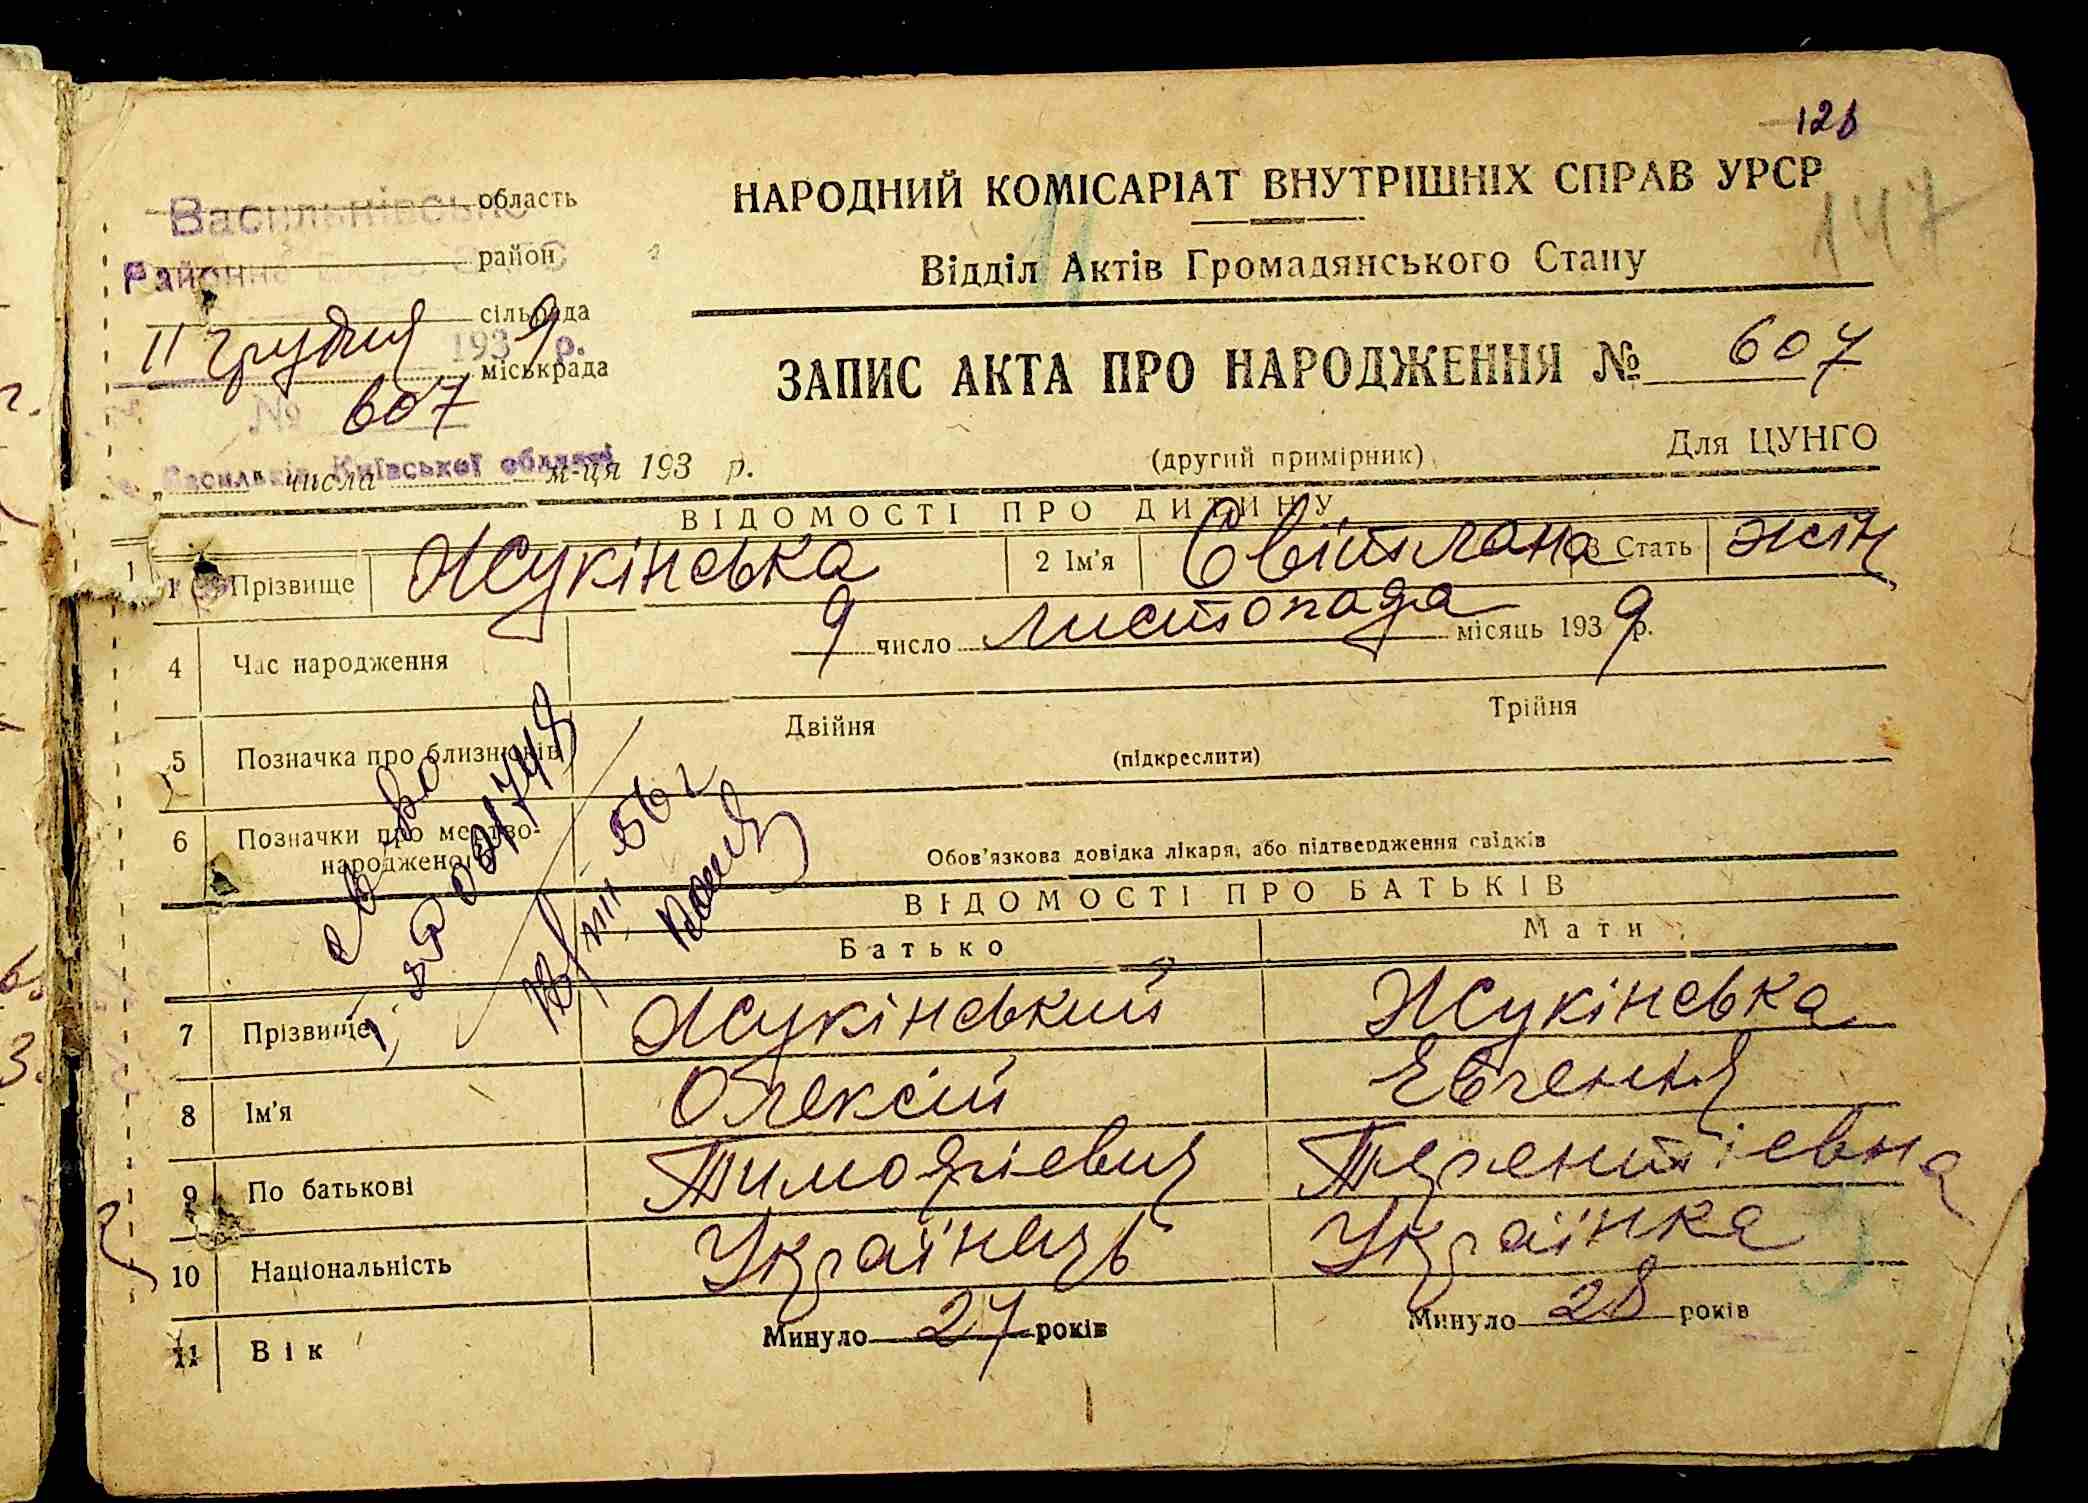 128
147
НАРОДНИЙ КОМІСАРІАТ ВНУТРІШНІХ СПРАВ УРСР
Відділ Актів Громадянського Стану
Васильківське область
Районне район
сільрада
11 грудня 1939 р.
міськрада
№ 607
Васильків Київської області
числа м-ця 193 р.
ЗАПИС АКТА ПРО НАРОДЖЕННЯ № 607
(другий примірник) Для ЦУНГО
ВІДОМОСТІ ПРО ДИТИНУ
1 Прізвище Жукінська 2 Ім'я Світлана 3 Стать жін
4 Час народження 9 число листопада місяць 1939 р.
5 Позначка про близнюків Двійня Трійня
(підкреслити)
6 Позначки про мертво-
народженого
Обов'язкова довідка лікаря, або підтвердження свідків
56 г
ВІДОМОСТІ ПРО БАТЬКІВ
Батько Мати
7 Прізвище Жукінський Жукінська
8 Ім'я Олексій Євгенія
9 По батькові Тимофієвич Терентієвна
10 Національність Українець Українка
11 Вік Минуло 27 років Минуло 28 років